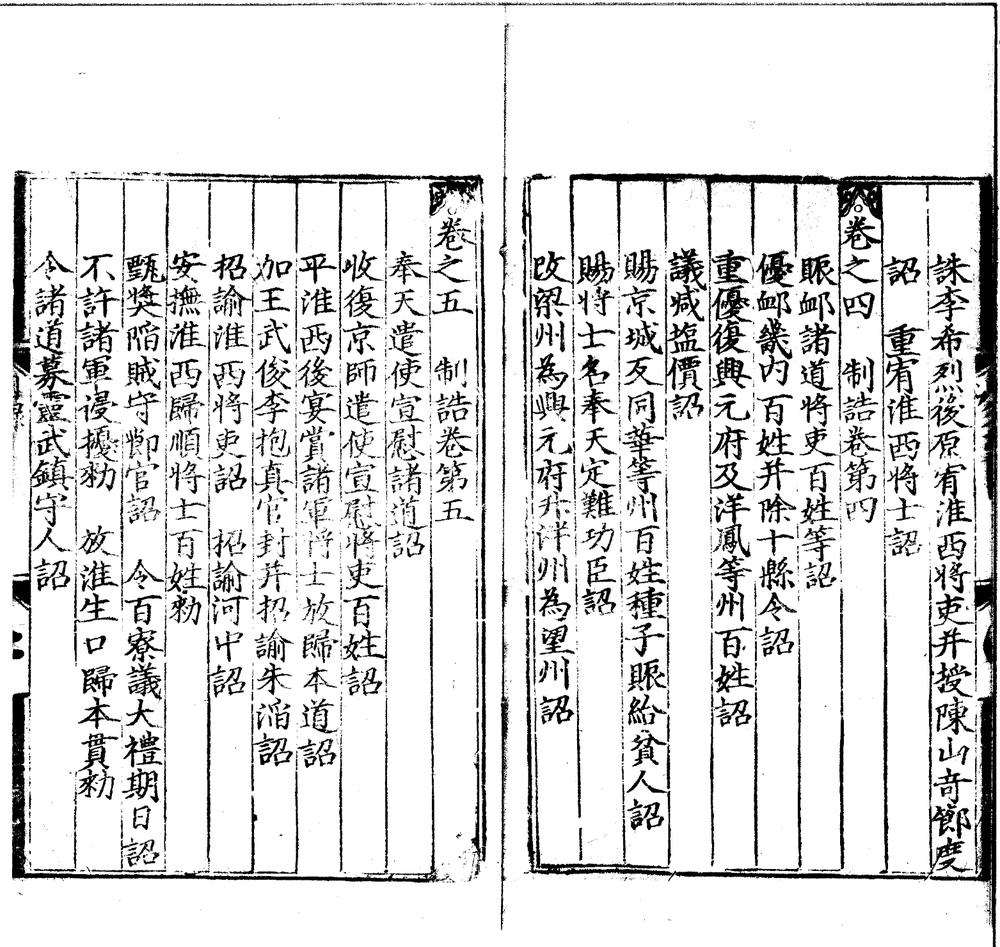 誅李希烈後原宥淮西將吏并授陳山竒節度
詔　重宥淮西將士詔
卷之四　制誥卷第四
賑邺諸道將吏百姓等詔
優邺畿内百姓并除十縣令詔
重優復興元府及洋鳳等州百姓詔
議减塩價詔
賜京城及同華等州百姓種子賑給貧人詔
賜將士名奉天定難功臣詔
改梁州為興元府升洋州為望州詔
卷之五　制誥卷第五
奉天遣使宣慰諸道詔
收復京師遣使宣慰將吏百姓詔
平淮西後宴賞諸軍將士放歸本道詔
加王武俊李抱真官封并招諭朱滔詔
招諭淮西將吏詔　招諭河中詔
安撫淮西歸順將士百姓勑
甄奬陷賊守節官詔　令百寮議大禮期日詔
不許諸軍侵擾勑　放淮生口歸本貫勑
令諸道募靈武鎮守人詔